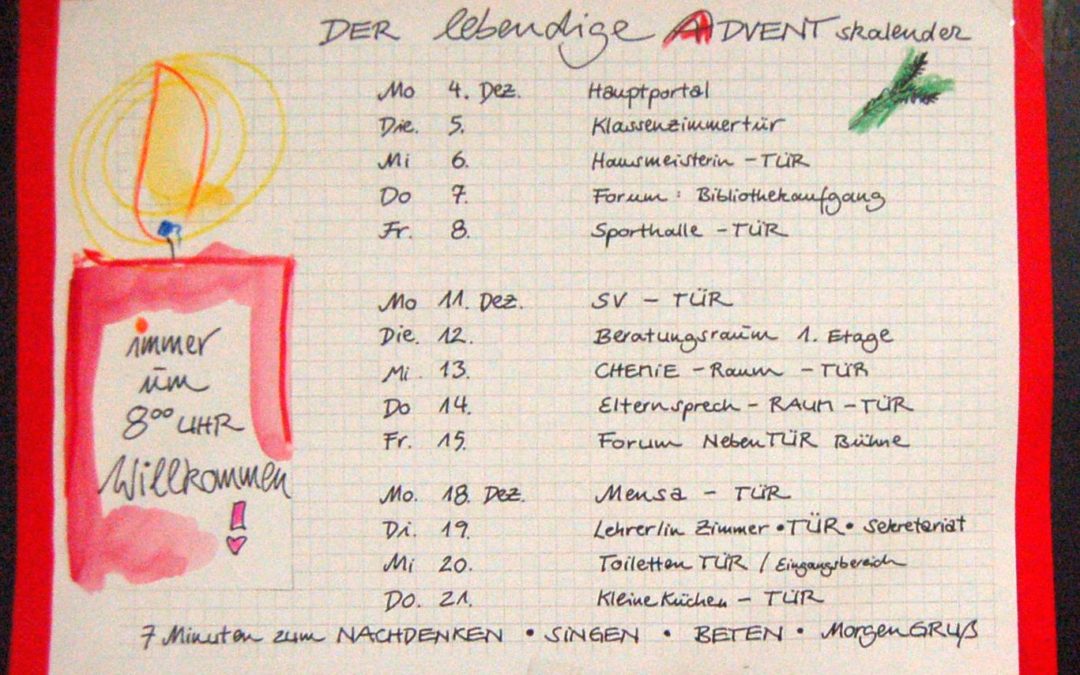 DER lebendige ADVENTskalender
Mo 4. Dez. Hauptportal
Die. 5. Klassenzimmertür
Mi 6. Hausmeisterin - TÜR
Do 7. Forum: Bibliothekaufgang
Fr. 8. Sporthalle - TÜR
Mo 11. Dez. SV - TÜR
Die. 12. Beratungsraum 1. Etage
Mi. 13. CHEMiE - Raum - TÜR
Do 14. Elternsprech - RAUM - TÜR
Fr. 15. Forum NebenTÜR Bühne
Mo. 18. Dez. Mensa - TÜR
Di. 19. Lehrer/in Zimmer • TÜR • Sekretariat
Mi 20. Toiletten TÜR / Eingangsbereich
Do. 21. Kleine Küchen - TÜR
immer
um
8⁰⁰ UHR
Willkommen
!
7 Minuten zum NACHDENKEN • SiNGEN • BETEN • MorgenGRUß